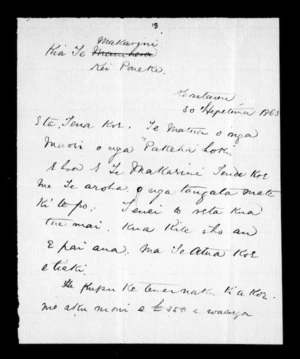 Makarini
Kia Te
Kei Poneke.
30 Hepetema 186
E ta. Tena koe. Te Matua o nga
Maori o nga Pakeha hoki
E hoa E Te Makarini Tena koe
me Te aroha o nga tangata mate
ki te po. Tenei to reta kua
tae mai. Kua kite iho au
E pai ana. Ma Te Atua koe
e tiaki.
He kupu ke tenei naku kia koe.
mo aku moni e £300 e waenga